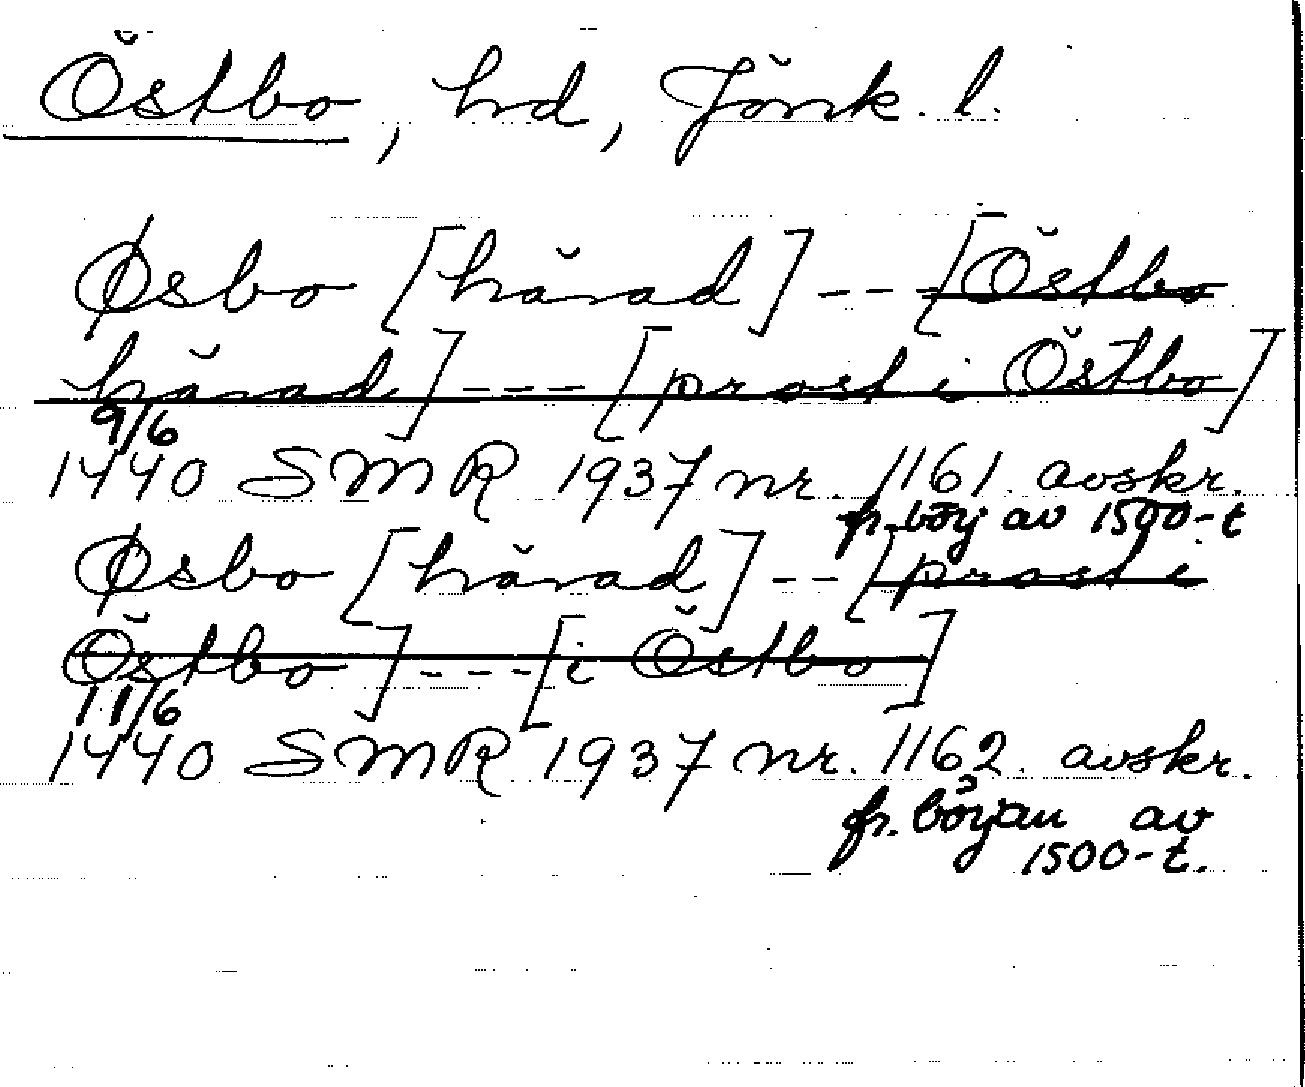 Östbo, hd, Jönk. l.
Øsbo [härad] --- [Östbo
härad] --- [prost i Östbo]
9/6
1440 SMR 1937 nr. 1161. avskr.
fr. börj av 1500-t
Øsbo [härad] -- [prost i
Östbo] --- [i Östbo]
11/6
1440 SMR 1937 nr. 1162. avskr.
fr. början av
1500-t.